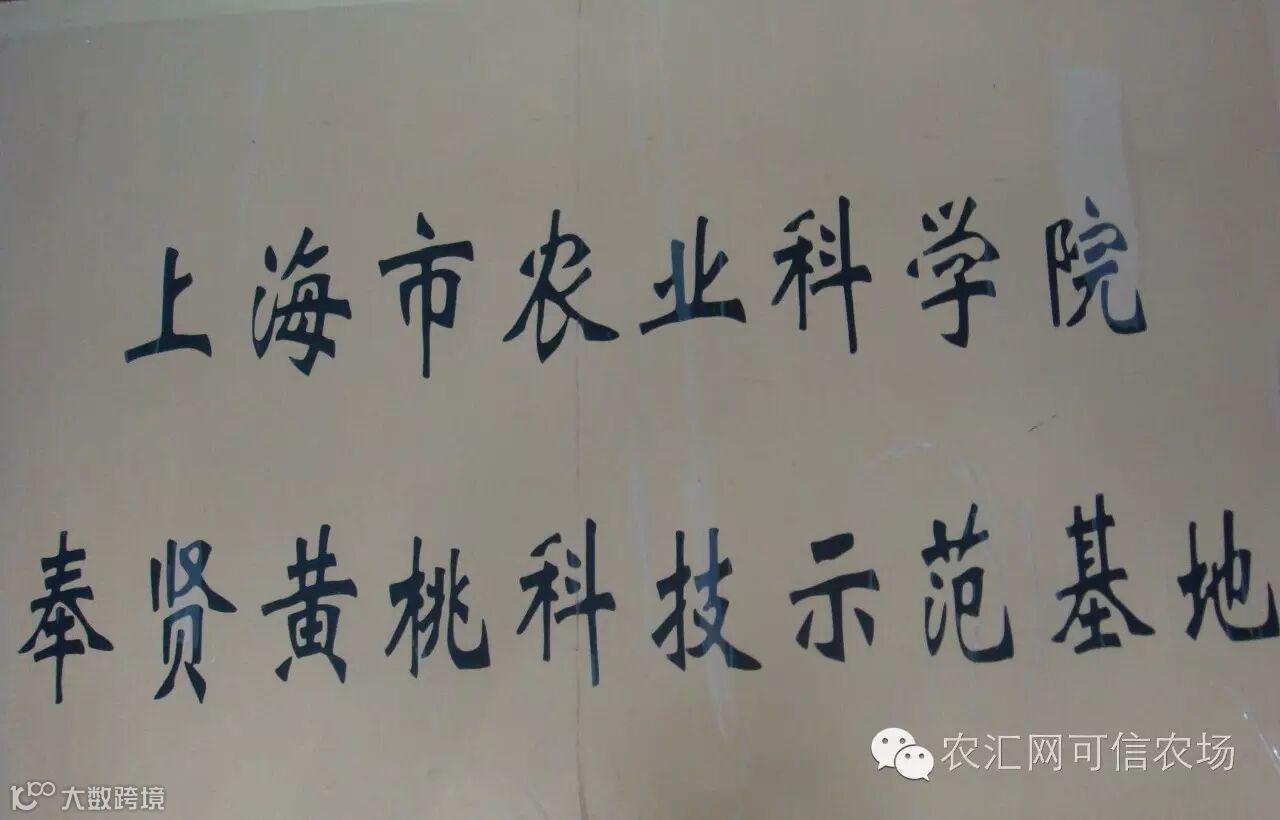 上海市农业科学院
奉贤黄桃科技示范基地
农汇网可信农场
大数跨境